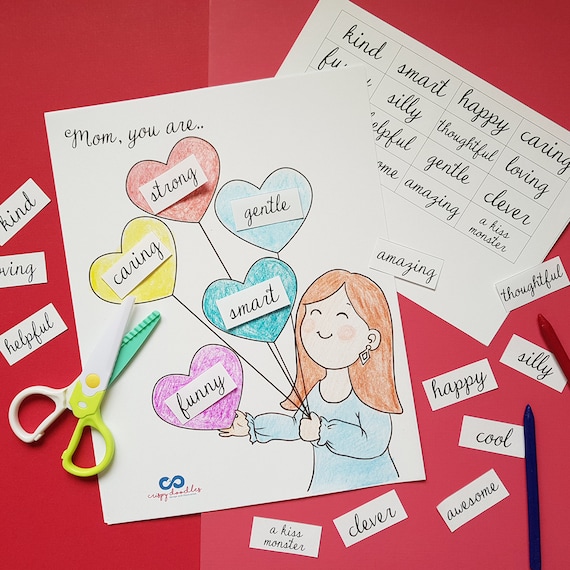 Mom, you are..
strong
gentle
caring
smart
funny
crispydoodles
kind
smart
happy
caring
silly
thoughtful
loving
helpful
gentle
clever
amazing
a kiss
monster
kind
loving
helpful
amazing
thoughtful
silly
happy
cool
awesome
clever
a kiss
monster